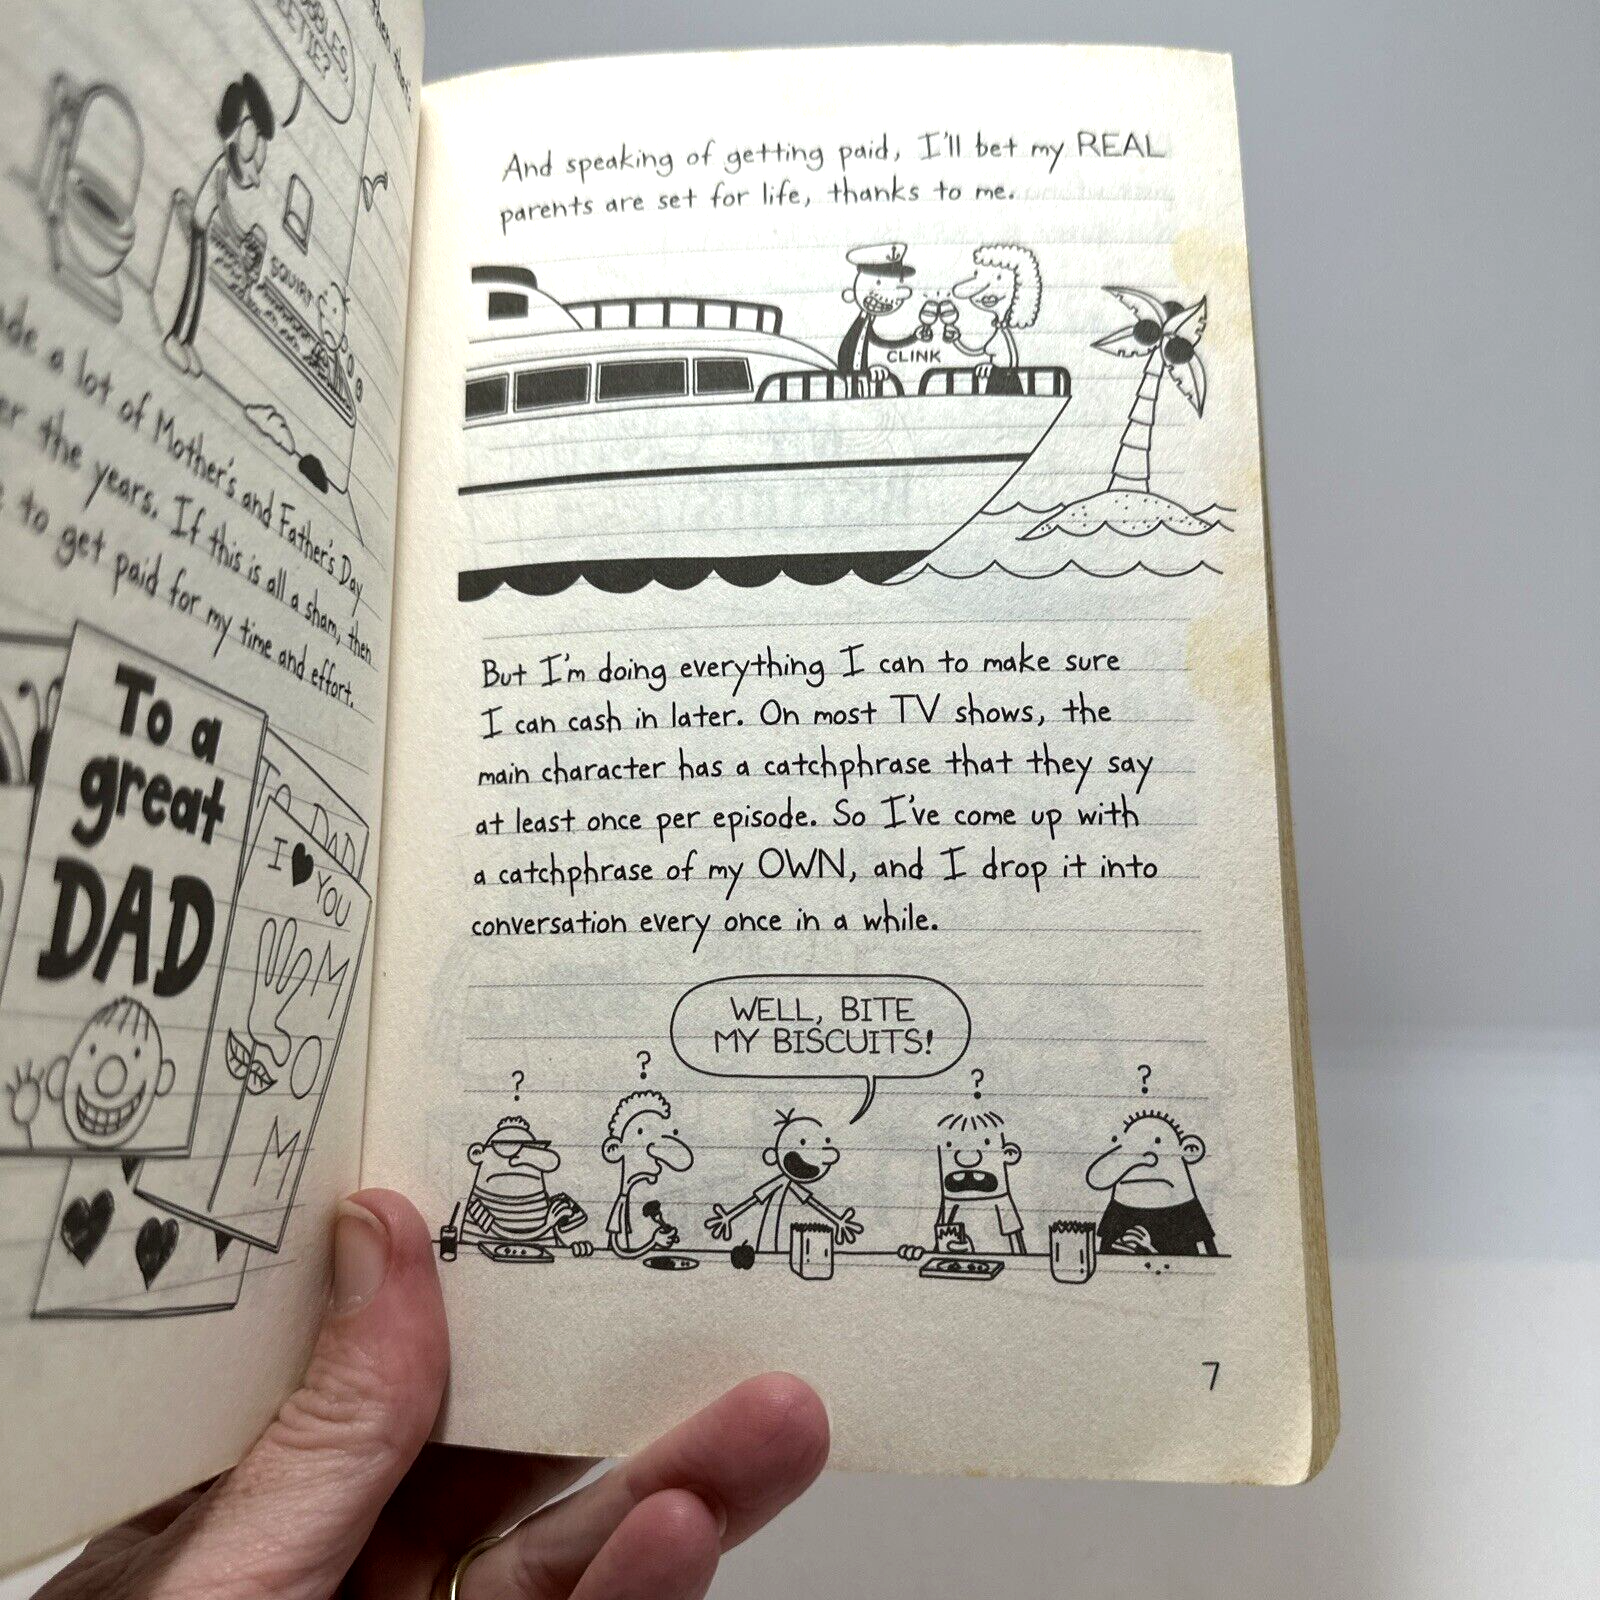 BBLES,
SQUIRT
ade a lot of Mother's and Father's Day
er the years. If this is all a sham, then
to get paid for my time and effort.
To a
great
DAD
TO DAD
I ♥ YOU
M
O
M
And speaking of getting paid, I'll bet my REAL
parents are set for life, thanks to me.
CLINK
But I'm doing everything I can to make sure
I can cash in later. On most TV shows, the
main character has a catchphrase that they say
at least once per episode. So I've come up with
a catchphrase of my OWN, and I drop it into
conversation every once in a while.
WELL, BITE
MY BISCUITS!
?
?
?
?
7